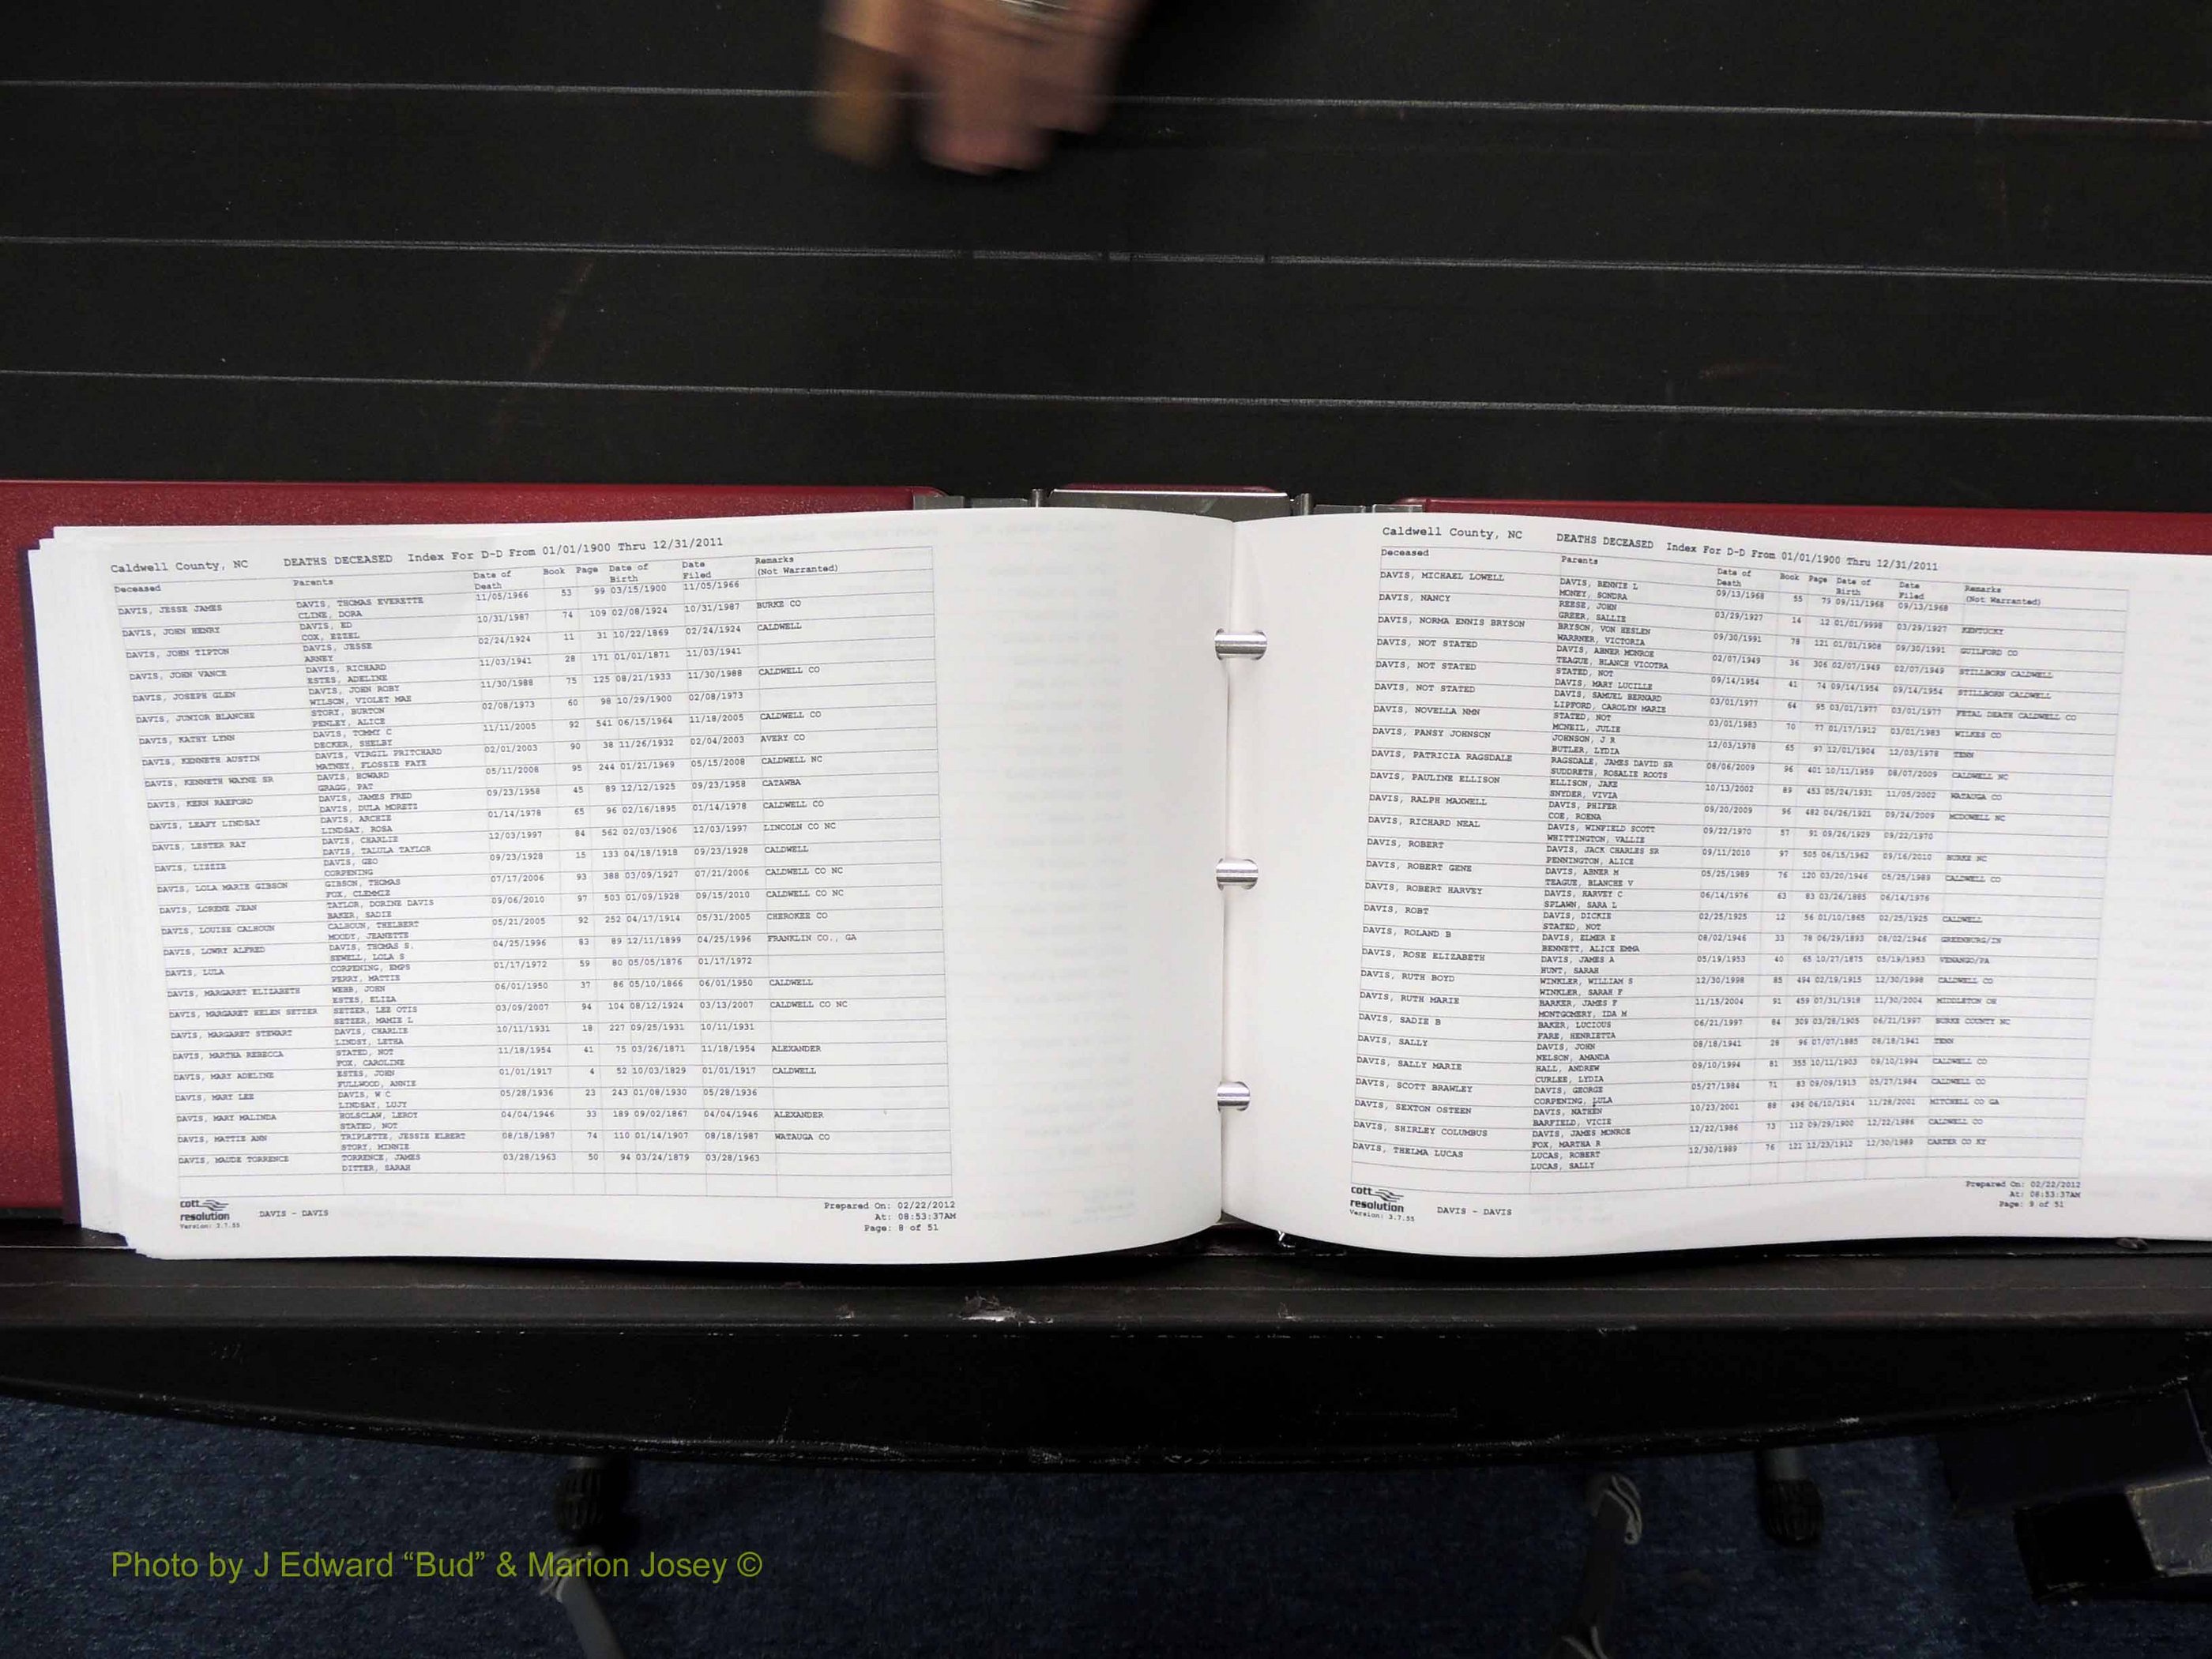 Caldwell County, NC DEATHS DECEASED Index For D-D From 01/01/1900 Thru 12/31/2011
Deceased Parents Date of Death Book Page Date of Birth Date Filed Remarks (Not Warranted)
DAVIS, JESSE JAMES DAVIS, THOMAS EVERETTE 11/05/1966 53 99 03/15/1900 11/05/1966
CLINE, DORA
DAVIS, JOHN HENRY DAVIS, ED 10/31/1987 74 109 02/08/1924 10/31/1987 BURKE CO
COX, EZZEL
DAVIS, JOHN TIPTON DAVIS, JESSE 02/24/1924 11 31 10/22/1869 02/24/1924 CALDWELL
ARNEY
DAVIS, JOHN VANCE DAVIS, RICHARD 11/03/1941 28 171 01/01/1871 11/03/1941
ESTES, ADELINE
DAVIS, JOSEPH GLEN DAVIS, JOHN ROBY 11/30/1988 75 125 08/21/1933 11/30/1988 CALDWELL CO
WILSON, VIOLET MAE
DAVIS, JUNIOR BLANCHE STORY, BURTON 02/08/1973 60 98 10/29/1900 02/08/1973
PENLEY, ALICE
DAVIS, KATHY LYNN DAVIS, TOMMY C 11/11/2005 92 541 06/15/1964 11/18/2005 CALDWELL CO
DECKER, SHELBY
DAVIS, KENNETH AUSTIN DAVIS, VIRGIL PRITCHARD 02/01/2003 90 38 11/26/1932 02/04/2003 AVERY CO
MATNEY, FLOSSIE FAYE
DAVIS, KENNETH WAYNE SR DAVIS, HOWARD 05/11/2008 95 244 01/21/1969 05/15/2008 CALDWELL NC
GRAGG, PAT
DAVIS, KERN RAEFORD DAVIS, JAMES FRED 09/23/1958 45 89 12/12/1925 09/23/1958 CATAWBA
DAVIS, DULA MORETZ
DAVIS, LEAFY LINDSAY DAVIS, ARCHIE 01/14/1978 65 96 02/16/1895 01/14/1978 CALDWELL CO
LINDSAY, ROSA
DAVIS, LESTER RAY DAVIS, CHARLIE 12/03/1997 84 562 02/03/1906 12/03/1997 LINCOLN CO NC
DAVIS, TALULA TAYLOR
DAVIS, LIZZIE DAVIS, GEO 09/23/1928 15 133 04/18/1918 09/23/1928 CALDWELL
CORPENING
DAVIS, LOLA MARIE GIBSON GIBSON, THOMAS 07/17/2006 93 388 03/09/1927 07/21/2006 CALDWELL CO NC
FOX, CLEMMIE
DAVIS, LORENE JEAN TAYLOR, DORINE DAVIS 09/06/2010 97 503 01/09/1928 09/15/2010 CALDWELL CO NC
BAKER, SADIE
DAVIS, LOUISE CALHOUN CALHOUN, THELBERT 05/21/2005 92 252 04/17/1914 05/31/2005 CHEROKEE CO
MOODY, JEANETTE
DAVIS, LOWRY ALFRED DAVIS, THOMAS S. 04/25/1996 83 89 12/11/1899 04/25/1996 FRANKLIN CO., GA
SEWELL, LOLA S
DAVIS, LULA CORPENING, EMPS 01/17/1972 59 80 05/05/1876 01/17/1972
PERRY, MATTIE
DAVIS, MARGARET ELIZABETH WEBB, JOHN 06/01/1950 37 86 05/10/1866 06/01/1950 CALDWELL
ESTES, ELIZA
DAVIS, MARGARET HELEN SETZER SETZER, LEE OTIS 03/09/2007 94 104 08/12/1924 03/13/2007 CALDWELL CO NC
SETZER, MAMIE L
DAVIS, MARGARET STEWART DAVIS, CHARLIE 10/11/1931 18 227 09/25/1931 10/11/1931
LINDSY, LETHA
DAVIS, MARTHA REBECCA STATED, NOT 11/18/1954 41 75 03/26/1871 11/18/1954 ALEXANDER
FOX, CAROLINE
DAVIS, MARY ADELINE ESTES, JOHN 01/01/1917 4 52 10/03/1829 01/01/1917 CALDWELL
FULLWOOD, ANNIE
DAVIS, MARY LEE DAVIS, W C 05/28/1936 23 243 01/08/1930 05/28/1936
LINDSAY, LUJY
DAVIS, MARY MALINDA HOLSCLAW, LEROY 04/04/1946 33 189 09/02/1867 04/04/1946 ALEXANDER
STATED, NOT
DAVIS, MATTIE ANN TRIPLETTE, JESSIE ELBERT 08/18/1987 74 110 01/14/1907 08/18/1987 WATAUGA CO
STORY, MINNIE
DAVIS, MAUDE TORRENCE TORRENCE, JAMES 03/28/1963 50 94 03/24/1879 03/28/1963
DITTER, SARAH
cott resolution Version: 3.7.55
DAVIS - DAVIS
Prepared On: 02/22/2012
At: 08:53:37AM
Page: 8 of 51
Caldwell County, NC DEATHS DECEASED Index For D-D From 01/01/1900 Thru 12/31/2011
Deceased Parents Date of Death Book Page Date of Birth Date Filed Remarks (Not Warranted)
DAVIS, MICHAEL LOWELL DAVIS, BENNIE L 09/13/1968 55 79 09/11/1968 09/13/1968
MONEY, SONDRA
DAVIS, NANCY REESE, JOHN 03/29/1927 14 12 01/01/9998 03/29/1927 KENTUCKY
GREER, SALLIE
DAVIS, NORMA ENNIS BRYSON BRYSON, VON HESLEN 09/30/1991 78 121 01/01/1908 09/30/1991 GUILFORD CO
WARRNER, VICTORIA
DAVIS, NOT STATED DAVIS, ABNER MONROE 02/07/1949 36 306 02/07/1949 02/07/1949 STILLBORN CALDWELL
TEAGUE, BLANCH VICOTRA
DAVIS, NOT STATED STATED, NOT 09/14/1954 41 74 09/14/1954 09/14/1954 STILLBORN CALDWELL
DAVIS, MARY LUCILLE
DAVIS, NOT STATED DAVIS, SAMUEL BERNARD 03/01/1977 64 95 03/01/1977 03/01/1977 FETAL DEATH CALDWELL CO
LIPFORD, CAROLYN MARIE
DAVIS, NOVELLA NMN STATED, NOT 03/01/1983 70 77 01/17/1912 03/01/1983 WILKES CO
MCNEIL, JULIE
DAVIS, PANSY JOHNSON JOHNSON, J R 12/03/1978 65 97 12/01/1904 12/03/1978 TENN
BUTLER, LYDIA
DAVIS, PATRICIA RAGSDALE RAGSDALE, JAMES DAVID SR 08/06/2009 96 401 10/11/1959 08/07/2009 CALDWELL NC
SUDDRETH, ROSALIE ROOTS
DAVIS, PAULINE ELLISON ELLISON, JAKE 10/13/2002 89 453 05/24/1931 11/05/2002 WATAUGA CO
SNYDER, VIVIA
DAVIS, RALPH MAXWELL DAVIS, PHIFER 09/20/2009 96 482 04/26/1921 09/24/2009 MCDOWELL NC
COE, ROENA
DAVIS, RICHARD NEAL DAVIS, WINFIELD SCOTT 09/22/1970 57 91 09/26/1929 09/22/1970
WHITTINGTON, VALLIE
DAVIS, ROBERT DAVIS, JACK CHARLES SR 09/11/2010 97 505 06/15/1962 09/16/2010 BURKE NC
PENNINGTON, ALICE
DAVIS, ROBERT GENE DAVIS, ABNER M 05/25/1989 76 120 03/20/1946 05/25/1989 CALDWELL CO
TEAGUE, BLANCHE V
DAVIS, ROBERT HARVEY DAVIS, HARVEY C 06/14/1976 63 83 03/26/1885 06/14/1976
SPLAWN, SARA L
DAVIS, ROBT DAVIS, DICKIE 02/25/1925 12 56 01/10/1865 02/25/1925 CALDWELL
STATED, NOT
DAVIS, ROLAND B DAVIS, ELMER E 08/02/1946 33 78 06/29/1893 08/02/1946 GREENBURG/IN
BENNETT, ALICE EMMA
DAVIS, ROSE ELIZABETH DAVIS, JAMES A 05/19/1953 40 65 10/27/1875 05/19/1953 VENANGO/PA
HUNT, SARAH
DAVIS, RUTH BOYD WINKLER, WILLIAM S 12/30/1998 85 494 02/19/1915 12/30/1998 CALDWELL CO
WINKLER, SARAH F
DAVIS, RUTH MARIE BARKER, JAMES F 11/15/2004 91 459 07/31/1918 11/30/2004 MIDDLETON OH
MONTGOMERY, IDA M
DAVIS, SADIE B BAKER, LUCIOUS 06/21/1997 84 309 03/28/1905 06/21/1997 BURKE COUNTY NC
FARE, HENRIETTA
DAVIS, SALLY DAVIS, JOHN 08/18/1941 28 96 07/07/1885 08/18/1941 TENN
NELSON, AMANDA
DAVIS, SALLY MARIE HALL, ANDREW 09/10/1994 81 355 10/11/1903 09/10/1994 CALDWELL CO
CURLEE, LYDIA
DAVIS, SCOTT BRAWLEY DAVIS, GEORGE 05/27/1984 71 83 09/09/1913 05/27/1984 CALDWELL CO
CORPENING, LULA
DAVIS, SEXTON OSTEEN DAVIS, NATHEN 10/23/2001 88 496 06/10/1914 11/28/2001 MITCHELL CO GA
BARFIELD, VICIE
DAVIS, SHIRLEY COLUMBUS DAVIS, JAMES MONROE 12/22/1986 73 112 09/29/1900 12/22/1986 CALDWELL CO
FOX, MARTHA R
DAVIS, THELMA LUCAS LUCAS, ROBERT 12/30/1989 76 121 12/23/1912 12/30/1989 CARTER CO KY
LUCAS, SALLY
cott resolution Version: 3.7.55
DAVIS - DAVIS
Prepared On: 02/22/2012
At: 08:53:37AM
Page: 9 of 51
Photo by J Edward “Bud” & Marion Josey ©